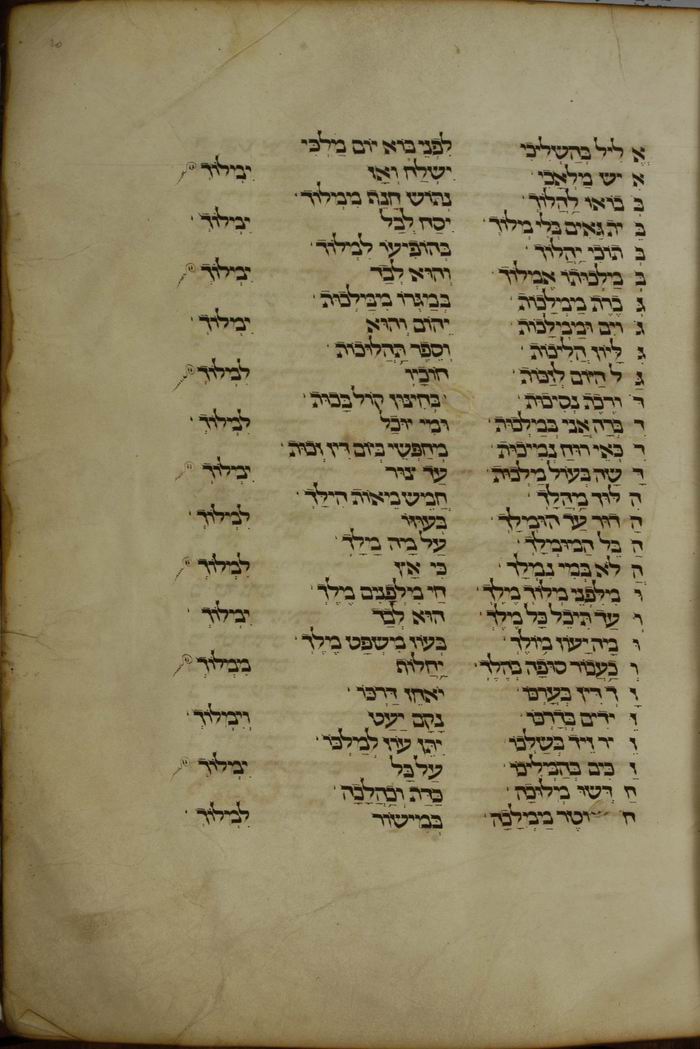 א ליל בהשליכי לפני בוא יום מלכי
א יש מלאכי ישלח ואז ימלוך
ב בואו להלוך נהוש חנה ממלוך
ב יה גאים בלי מלוך יסח לבל ימלוך
ב תוכי יהלוך בהופיעו למלוך
ב מלכותו אמלוך והוא לבד ימלוך
ג ברת ממלכות במגרו ממלכות
ג וים וממלכות יהום והוא ימלוך
ג ליון הליכות וספר תהלוכות
ג ל היום לזכות חוכיו למלוך
ד ורכת נסיכות בחינון קול בכות
ד ברה אני במלכות ומי יוכל למלוך
ד כאי רוח נמיכות מחפשי ביום דין זכות
ד שה בעול מלכות עד צור ימלוך
ה לוך מהלך חמיש מאות הילך
ה דור עד הומלך בעוזו למלוך
ה בל המומלך על מה מלך
ה לא במי נמלך כי אז למלוך
ו מלפני מלוך מלך חי מלפנים מלך
ו עד תיכל כל מלך הוא לבד ימלוך
ו מה יעון מולך בעון משפט מלך
ו בעבור סופה בהלך יחלוף ממלוך
ז ד דין בערכו יאחז דרכו
ז ידים בדרכו נקם יעט וימלוך
ז יר זיד בשלכו יתן עוז למלכו
ז כים בהמליכו על כל ימלוך
ח דשו מלוכה כדת וכהלכה
ח וטר ממלכה במישור למלוך